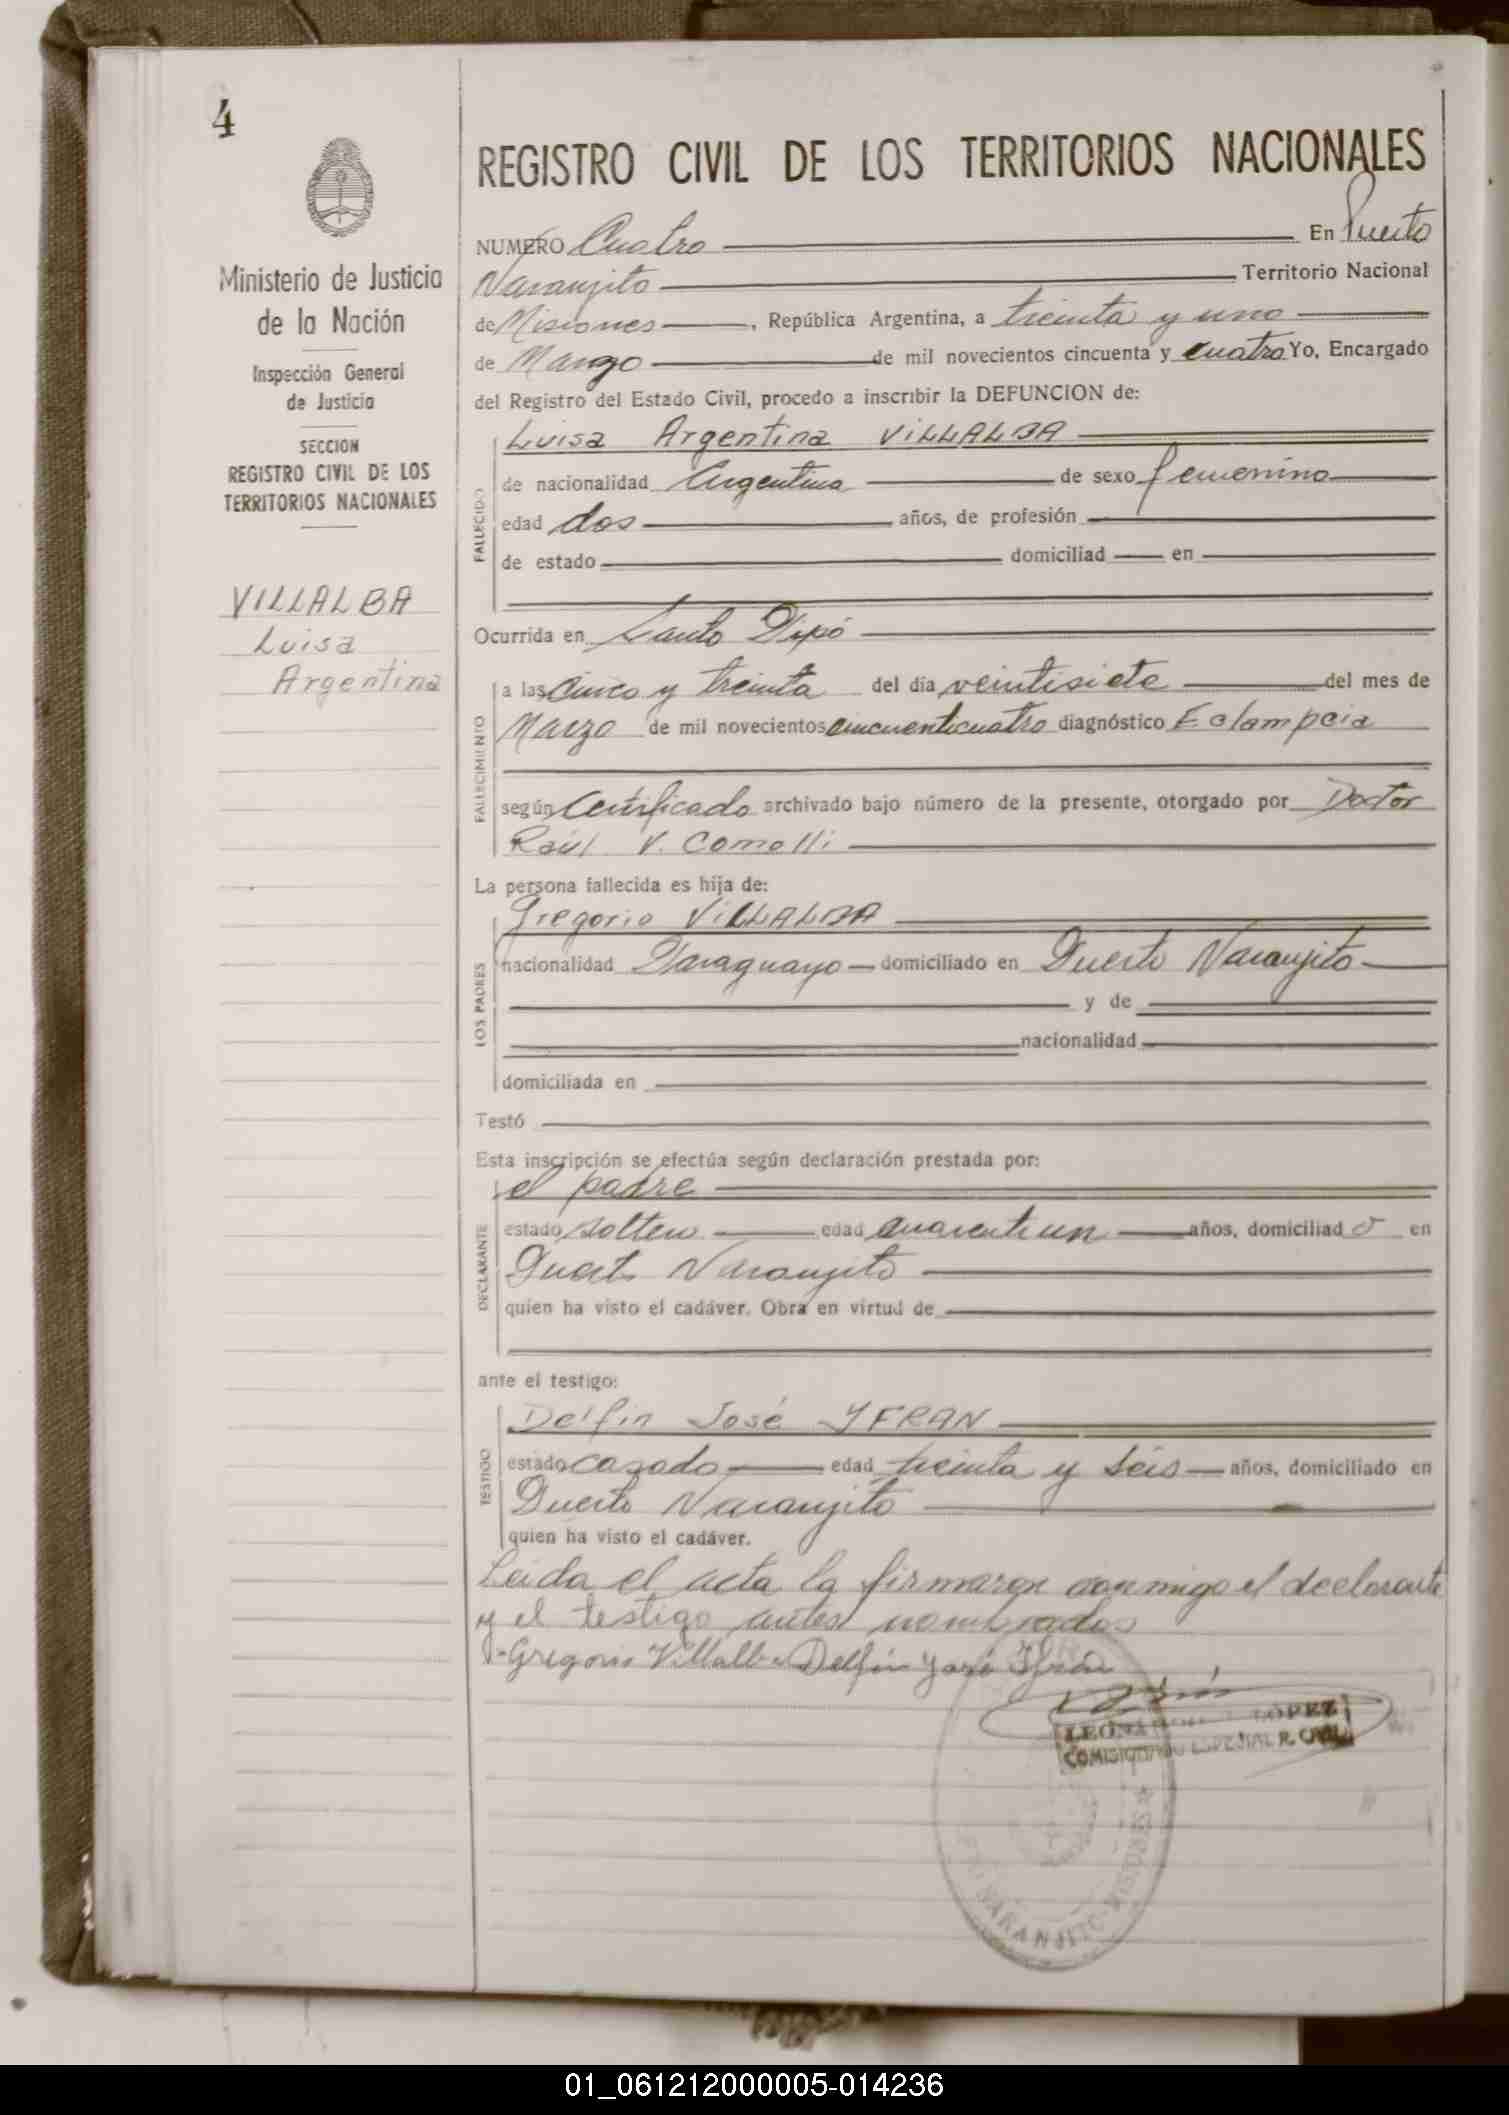 4
Ministerio de Justicia
de la Nación
Inspección General
de Justicia
SECCION
REGISTRO CIVIL DE LOS
TERRITORIOS NACIONALES
VILLALBA
Luisa
Argentina
REGISTRO CIVIL DE LOS TERRITORIOS NACIONALES
NUMERO Cuatro En Puerto
Naranjito Territorio Nacional
de Misiones, República Argentina, a treinta y uno
de Marzo de mil novecientos cincuenta y cuatro Yo, Encargado
del Registro del Estado Civil, procedo a inscribir la DEFUNCION de:
FALLECIDO
Luisa Argentina VILLALBA
de nacionalidad Argentina de sexo femenino
edad dos años, de profesión
de estado domiciliad en
Ocurrida en Santo Pipó
FALLECIMIENTO
a las cinco y treinta del día veintisiete del mes de
Marzo de mil novecientos cincuenticuatro diagnóstico Eclampcia
según Certificado archivado bajo número de la presente, otorgado por Doctor
Raúl V. Comolli
La persona fallecida es hija de:
LOS PADRES
Gregorio VILLALBA
nacionalidad Paraguayo domiciliado en Puerto Naranjito
y de
nacionalidad
domiciliada en
Testó
Esta inscripción se efectúa según declaración prestada por:
DECLARANTE
el padre
estado soltero edad cuarentiun años, domiciliad o en
Puerto Naranjito
quien ha visto el cadáver. Obra en virtud de
ante el testigo:
TESTIGO
Delfin José YFRAN
estado casado edad treinta y seis años, domiciliado en
Puerto Naranjito
quien ha visto el cadáver.
Leída el acta la firmaron conmigo el declarante
y el testigo antes nombrados
Gregorio Villalba Delfin José Yfrán
LOPEZ
COMISIONADO ESPECIAL R. CIVIL
NARANJITO-MISIONES
01_061212000005-014236